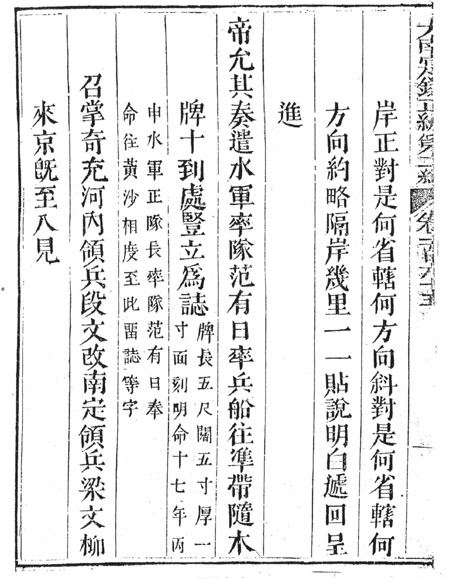 大南寔錄正編第二紀 卷一百六十五
岸正對是何省轄何方向斜對是何省轄何
方向約略隔岸幾里一一貼說明白遞回呈
進
帝允其奏遣水軍率隊范有日率兵船往準帶隨木
牌十到處豎立爲誌
牌長五尺闊五寸厚一
寸面刻明命十七年丙
申水軍正隊長率隊范有日奉
命往黃沙相度至此畱誌等字
召掌奇充河內領兵段文改南定領兵梁文柳
來京旣至入見